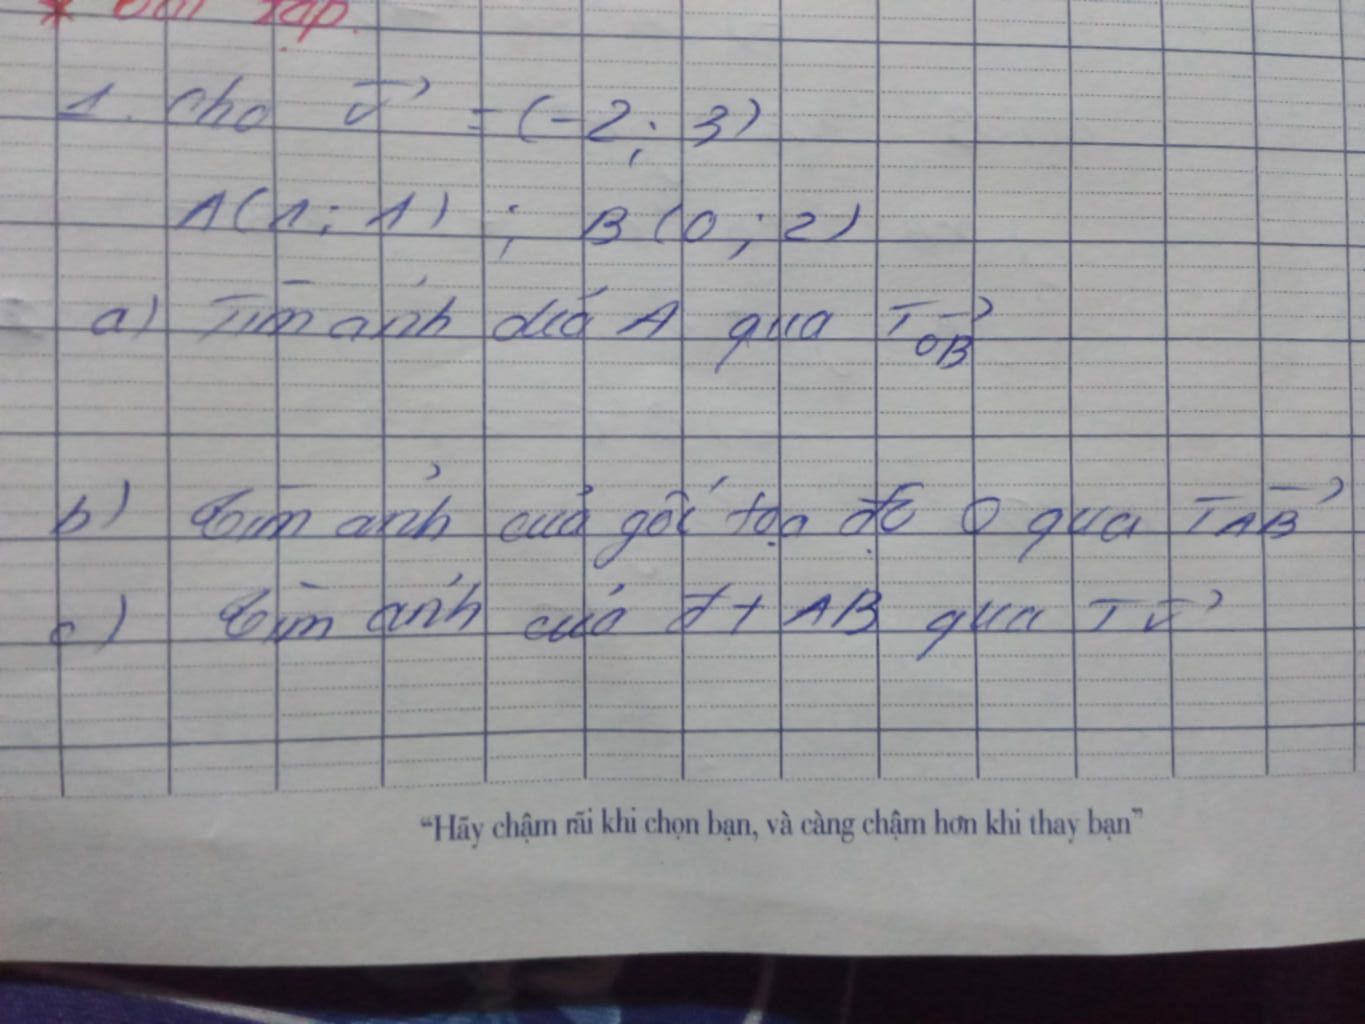 * Bài tập.
1. Cho v⃗ = (-2; 3)
A(1; 1) ; B(0; 2)
a) Tìm ảnh của A qua T_OB⃗
b) Tìm ảnh của gốc tọa độ O qua T_AB⃗
c) Tìm ảnh của đt AB qua T_v⃗
“Hãy chậm rãi khi chọn bạn, và càng chậm hơn khi thay bạn”